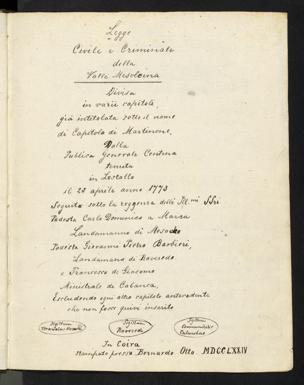 Legge
Civile e Criminale
della
Valle Mesolcina
Divisa
in varii capitoli,
già intitolata sotto il nome
di Capitolo di Martinone,
Dalla
Publica Generale Centena
tenuta
in Lostallo
il 28 aprile anno 1773
Seguita sotto la reggenza delli Ill.mi SSri
Podestà Carlo Domenico a Marca
Landamanno di Mesocco
Podestà Giovanni Pietro Barbieri,
Landamano di Roveredo
e Francesco di Giacomo
Ministrale de Calanca,
Escludendo ogni altro capitolo antecedente
che non fosse quivi inserito
Sigillum
Sigillum
Roveredi
Sigillum
Communitatis
In Coira
Stampato presso Bernardo Otto. MDCCLXXIV